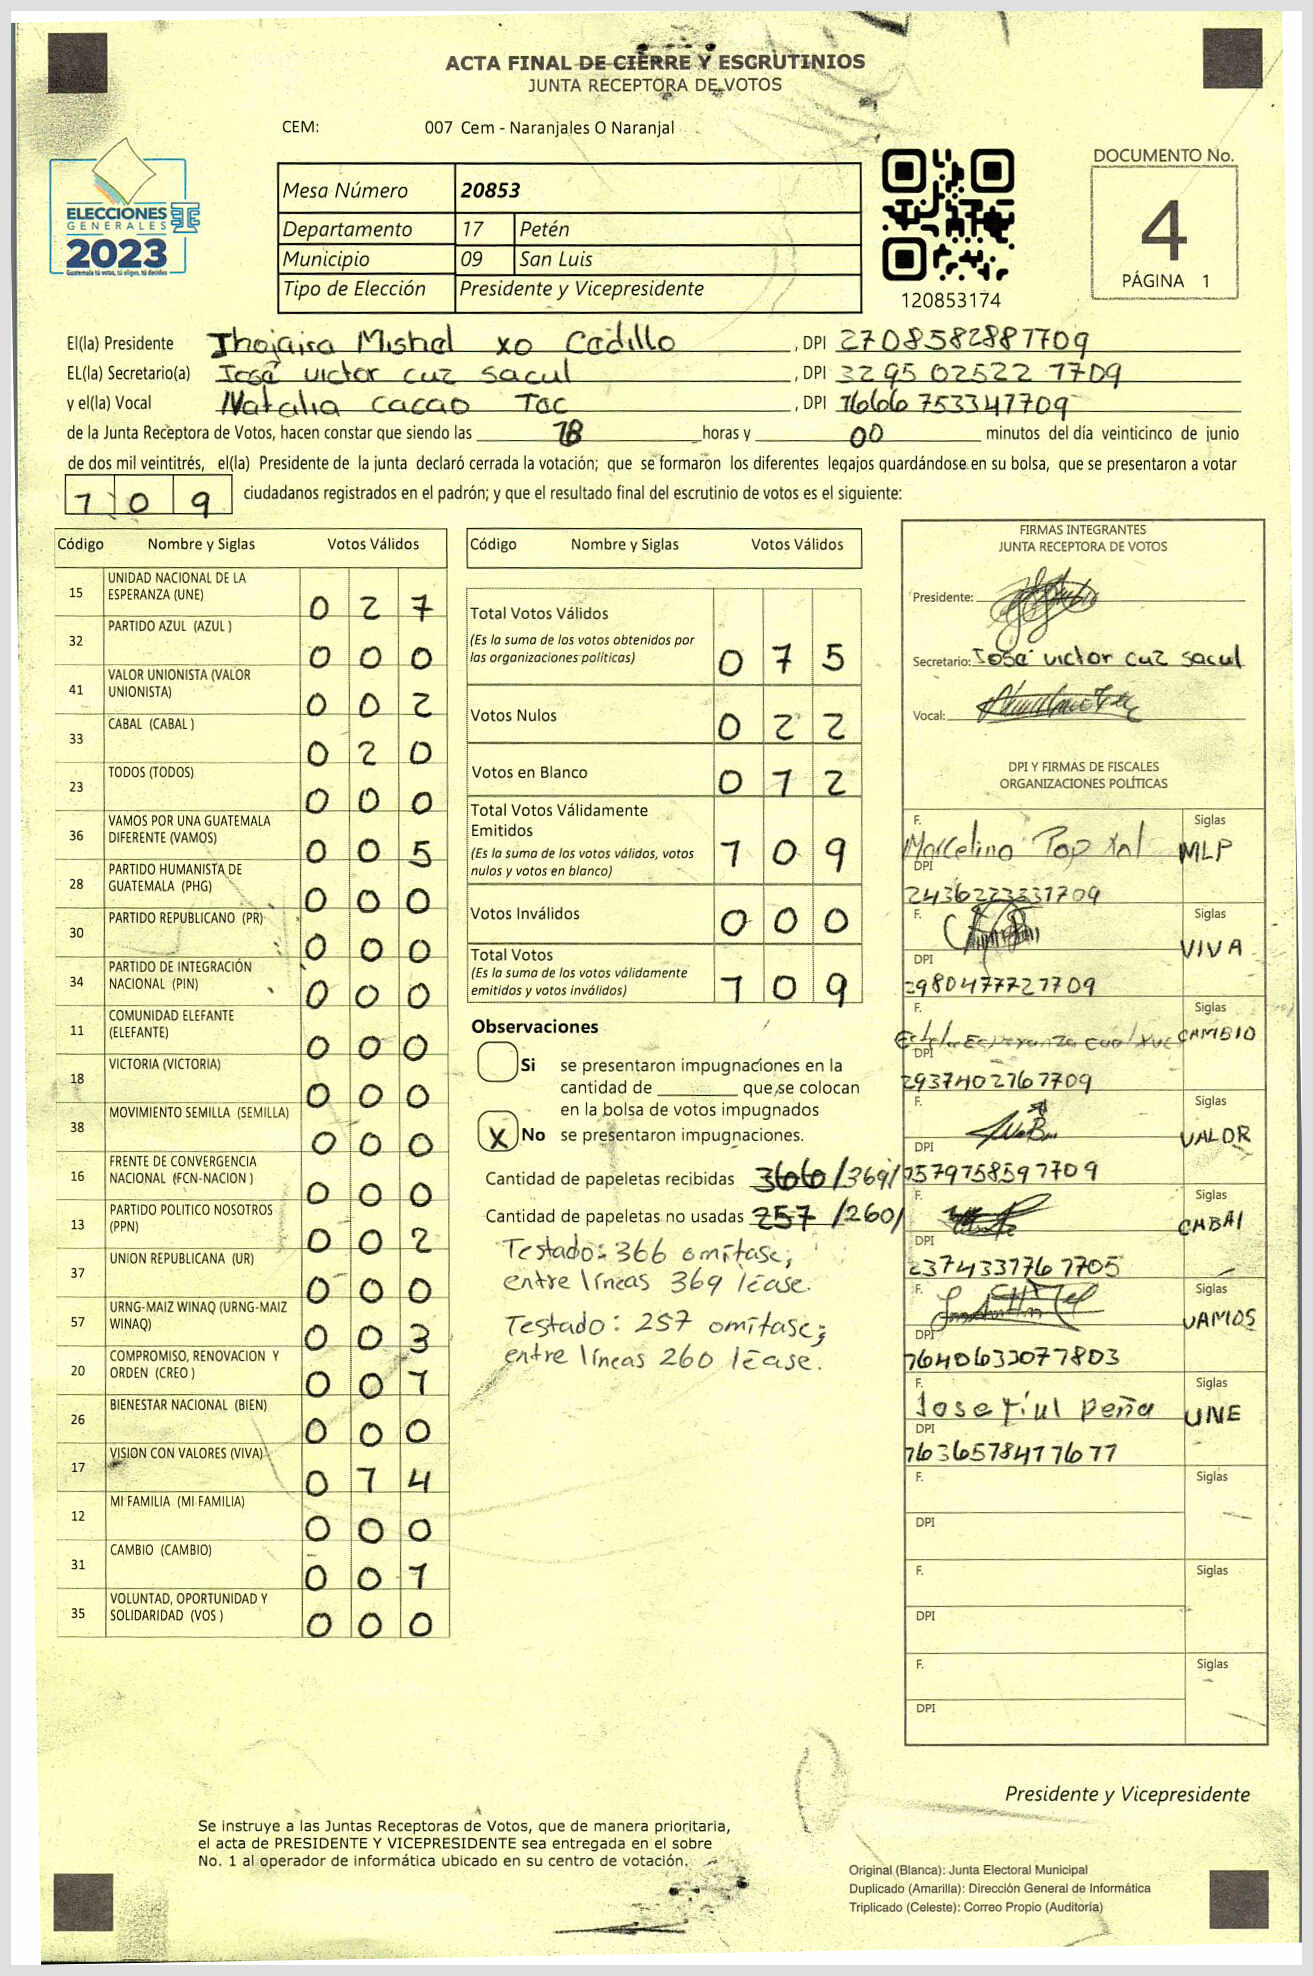 ACTA FINAL DE CIERRE Y ESCRUTINIOS
JUNTA RECEPTORA DE VOTOS
CEM: 007 Cem - Naranjales O Naranjal
ELECCIONES
GENERALES
2023
Guatemala tú votas, tú eliges, tú decides
Mesa Número 20853
Departamento 17 Petén
Municipio 09 San Luis
Tipo de Elección Presidente y Vicepresidente
120853174
DOCUMENTO No.
4
PÁGINA 1
El(la) Presidente Thojaira Mishel xo Cadillo, DPI 2708582881709
EL(la) Secretario(a) José victor cuz sacul, DPI 3295 02522 1709
y el(la) Vocal Natalia cacao Toc, DPI 1666753341709
de la Junta Receptora de Votos, hacen constar que siendo las 18 horas y 00 minutos del día veinticinco de junio
de dos mil veintitrés, el(la) Presidente de la junta declaró cerrada la votación; que se formaron los diferentes legajos quardándose en su bolsa, que se presentaron a votar
109 ciudadanos registrados en el padrón; y que el resultado final del escrutinio de votos es el siguiente:
Código Nombre y Siglas Votos Válidos
15 UNIDAD NACIONAL DE LA ESPERANZA (UNE) 0 2 7
32 PARTIDO AZUL (AZUL ) 0 0 0
41 VALOR UNIONISTA (VALOR UNIONISTA) 0 0 2
33 CABAL (CABAL ) 0 2 0
23 TODOS (TODOS) 0 0 0
36 VAMOS POR UNA GUATEMALA DIFERENTE (VAMOS) 0 0 5
28 PARTIDO HUMANISTA DE GUATEMALA (PHG) 0 0 0
30 PARTIDO REPUBLICANO (PR) 0 0 0
34 PARTIDO DE INTEGRACIÓN NACIONAL (PIN) 0 0 0
11 COMUNIDAD ELEFANTE (ELEFANTE) 0 0 0
18 VICTORIA (VICTORIA) 0 0 0
38 MOVIMIENTO SEMILLA (SEMILLA) 0 0 0
16 FRENTE DE CONVERGENCIA NACIONAL (FCN-NACION ) 0 0 0
13 PARTIDO POLITICO NOSOTROS (PPN) 0 0 2
37 UNION REPUBLICANA (UR) 0 0 0
57 URNG-MAIZ WINAQ (URNG-MAIZ WINAQ) 0 0 3
20 COMPROMISO, RENOVACION Y ORDEN (CREO ) 0 0 1
26 BIENESTAR NACIONAL (BIEN) 0 0 0
17 VISION CON VALORES (VIVA) 0 1 4
12 MI FAMILIA (MI FAMILIA) 0 0 0
31 CAMBIO (CAMBIO) 0 0 1
35 VOLUNTAD, OPORTUNIDAD Y SOLIDARIDAD (VOS ) 0 0 0
Código Nombre y Siglas Votos Válidos
Total Votos Válidos 0 7 5
(Es la suma de los votos obtenidos por
las organizaciones políticas)
Votos Nulos 0 2 2
Votos en Blanco 0 1 2
Total Votos Válidamente
Emitidos 1 0 9
(Es la suma de los votos válidos, votos
nulos y votos en blanco)
Votos Inválidos 0 0 0
Total Votos 1 0 9
(Es la suma de los votos válidamente
emitidos y votos inválidos)
Observaciones
Si se presentaron impugnaciones en la
cantidad de ________ que se colocan
en la bolsa de votos impugnados
X No se presentaron impugnaciones.
Cantidad de papeletas recibidas 366 /369/
Cantidad de papeletas no usadas 257 /260/
Testado: 366 omítase;
entre líneas 369 léase.
Testado: 257 omítase;
entre líneas 260 léase.
FIRMAS INTEGRANTES
JUNTA RECEPTORA DE VOTOS
Presidente:
Secretario: José victor cuz sacul
Vocal:
DPI Y FIRMAS DE FISCALES
ORGANIZACIONES POLÍTICAS
F. Marcelino Pop Siglas MLP
DPI 2436223331709
F. Siglas VIVA
DPI 2980477721709
F. Siglas CAMBIO
DPI 2937402761709
F. Siglas VALOR
DPI 1579758591709
F. Siglas CABAl
DPI 2374337761705
F. Siglas VAMOS
DPI 1640633071803
F. Jose Peña Siglas UNE
DPI 1636578411611
F. Siglas
DPI
F. Siglas
DPI
F. Siglas
DPI
Presidente y Vicepresidente
Se instruye a las Juntas Receptoras de Votos, que de manera prioritaria,
el acta de PRESIDENTE Y VICEPRESIDENTE sea entregada en el sobre
No. 1 al operador de informática ubicado en su centro de votación.
Original (Blanca): Junta Electoral Municipal
Duplicado (Amarilla): Dirección General de Informática
Triplicado (Celeste): Correo Propio (Auditoría)